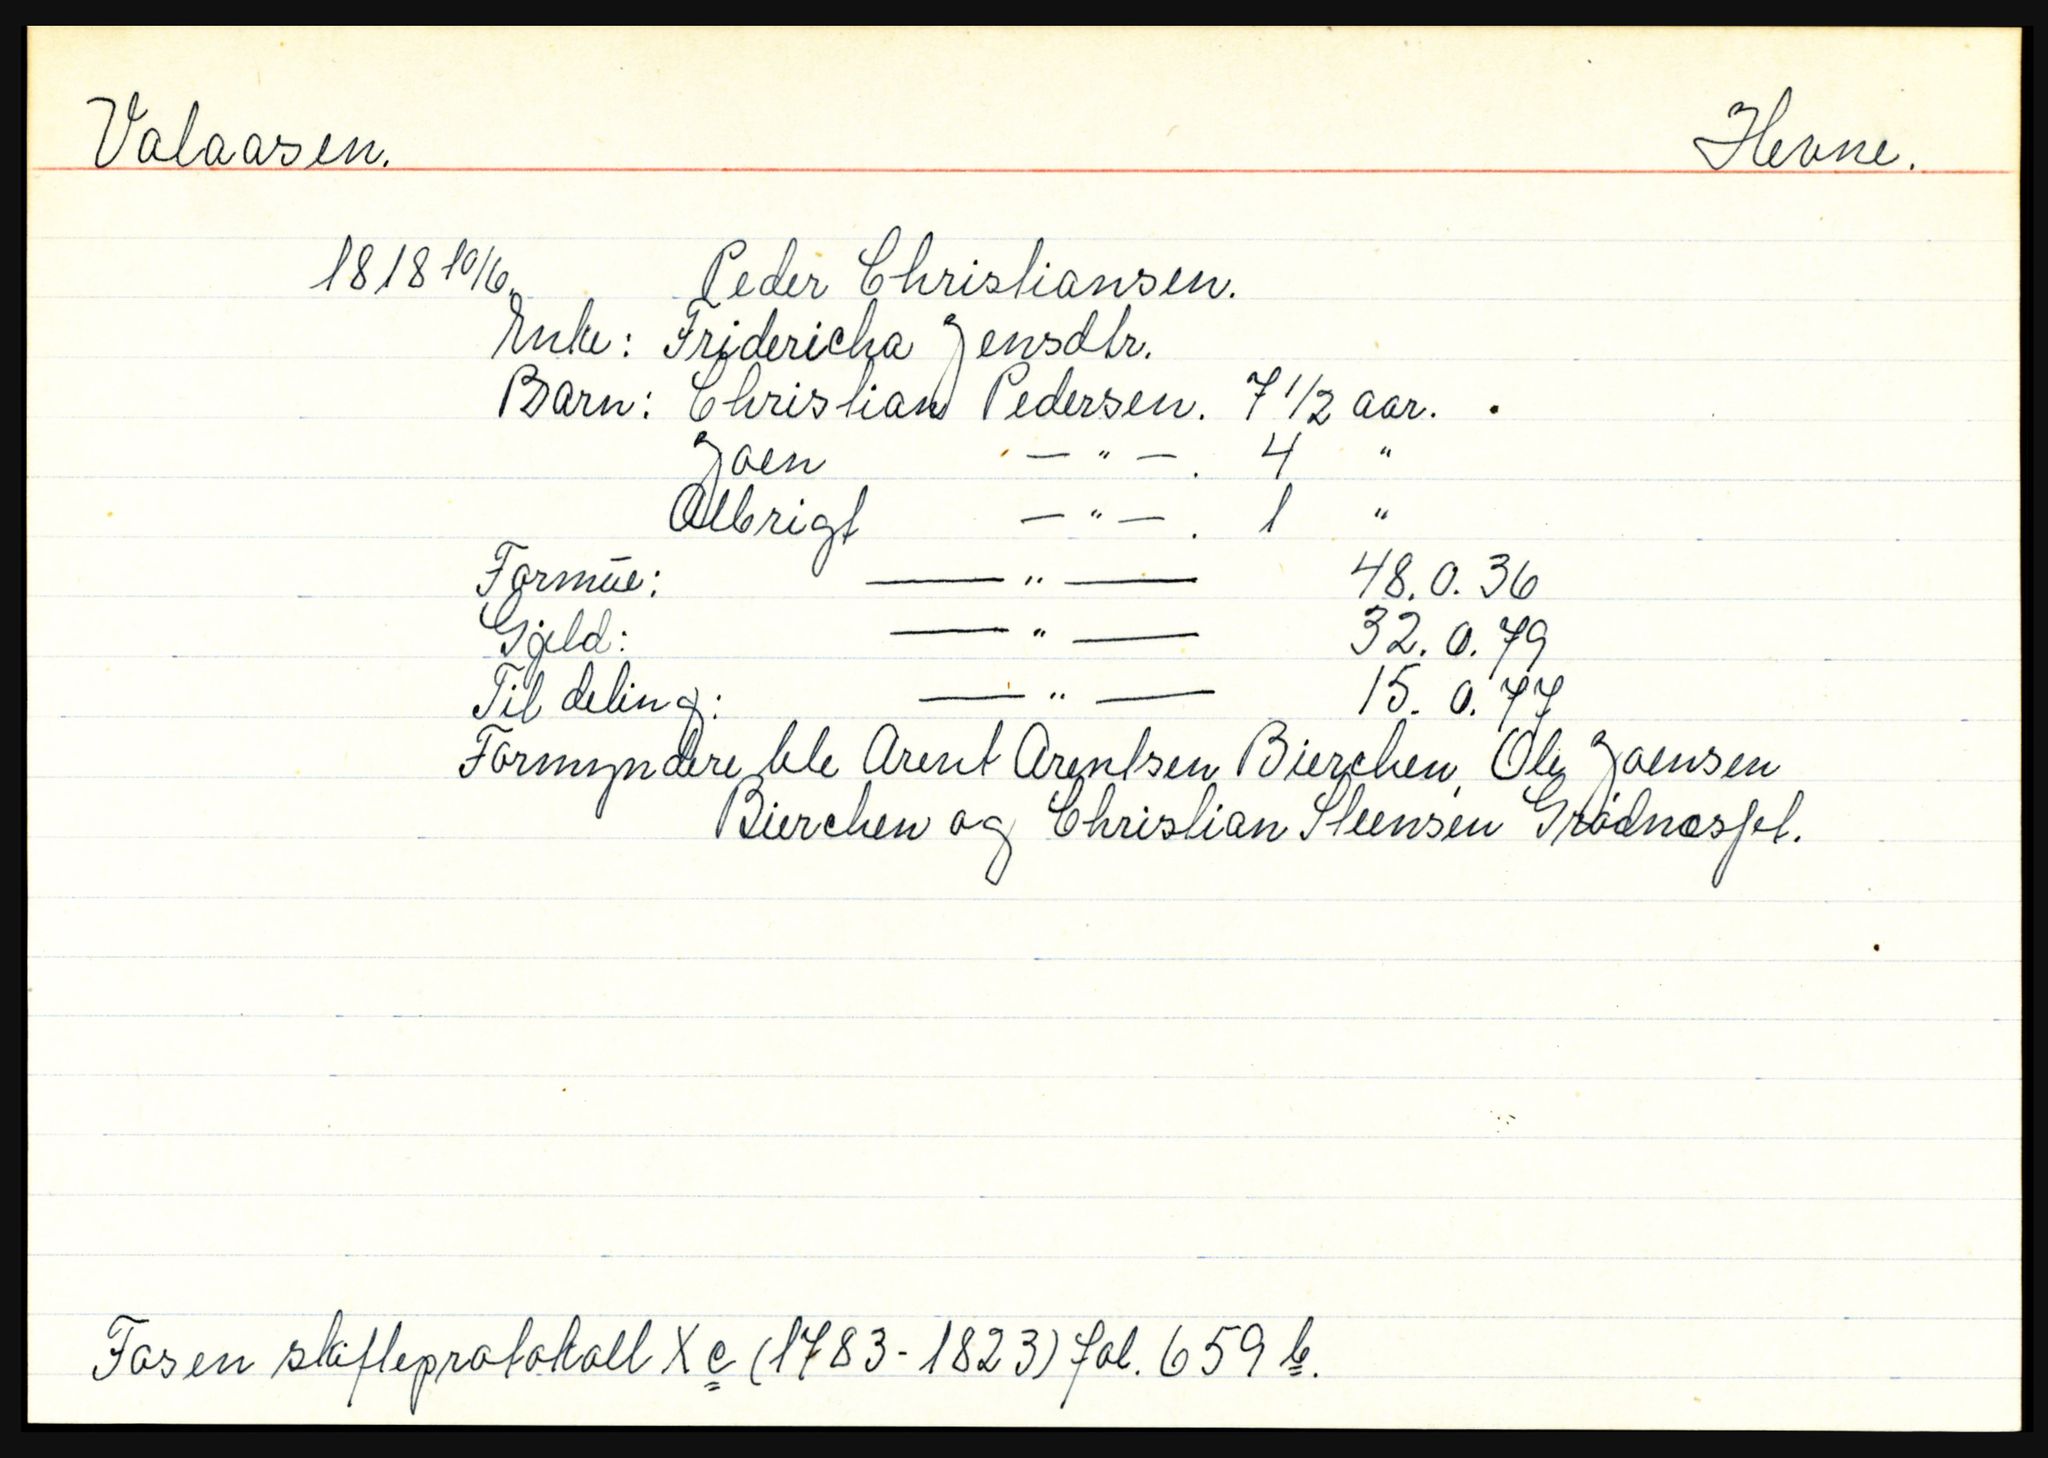 Valaasen. Hevne.
1818 10/6. Peder Christiansen.
Enke: Fridericha Jensdtr.
Barn: Christian Pedersen. 7 1/2 aar.
Joen — " —. 4 "
Albrigt — " —. 1 "
Formue: — " — 48. 0. 36
Gjeld: — " — 32. 0. 79
Til deling: — " — 15. 0. 77
Formyndere ble Arent Arentsen Bierchen, Ole Joensen
Bierchen og Christian Steensen
Fosen skifteprotokoll X c (1783-1823) fol. 659 b.